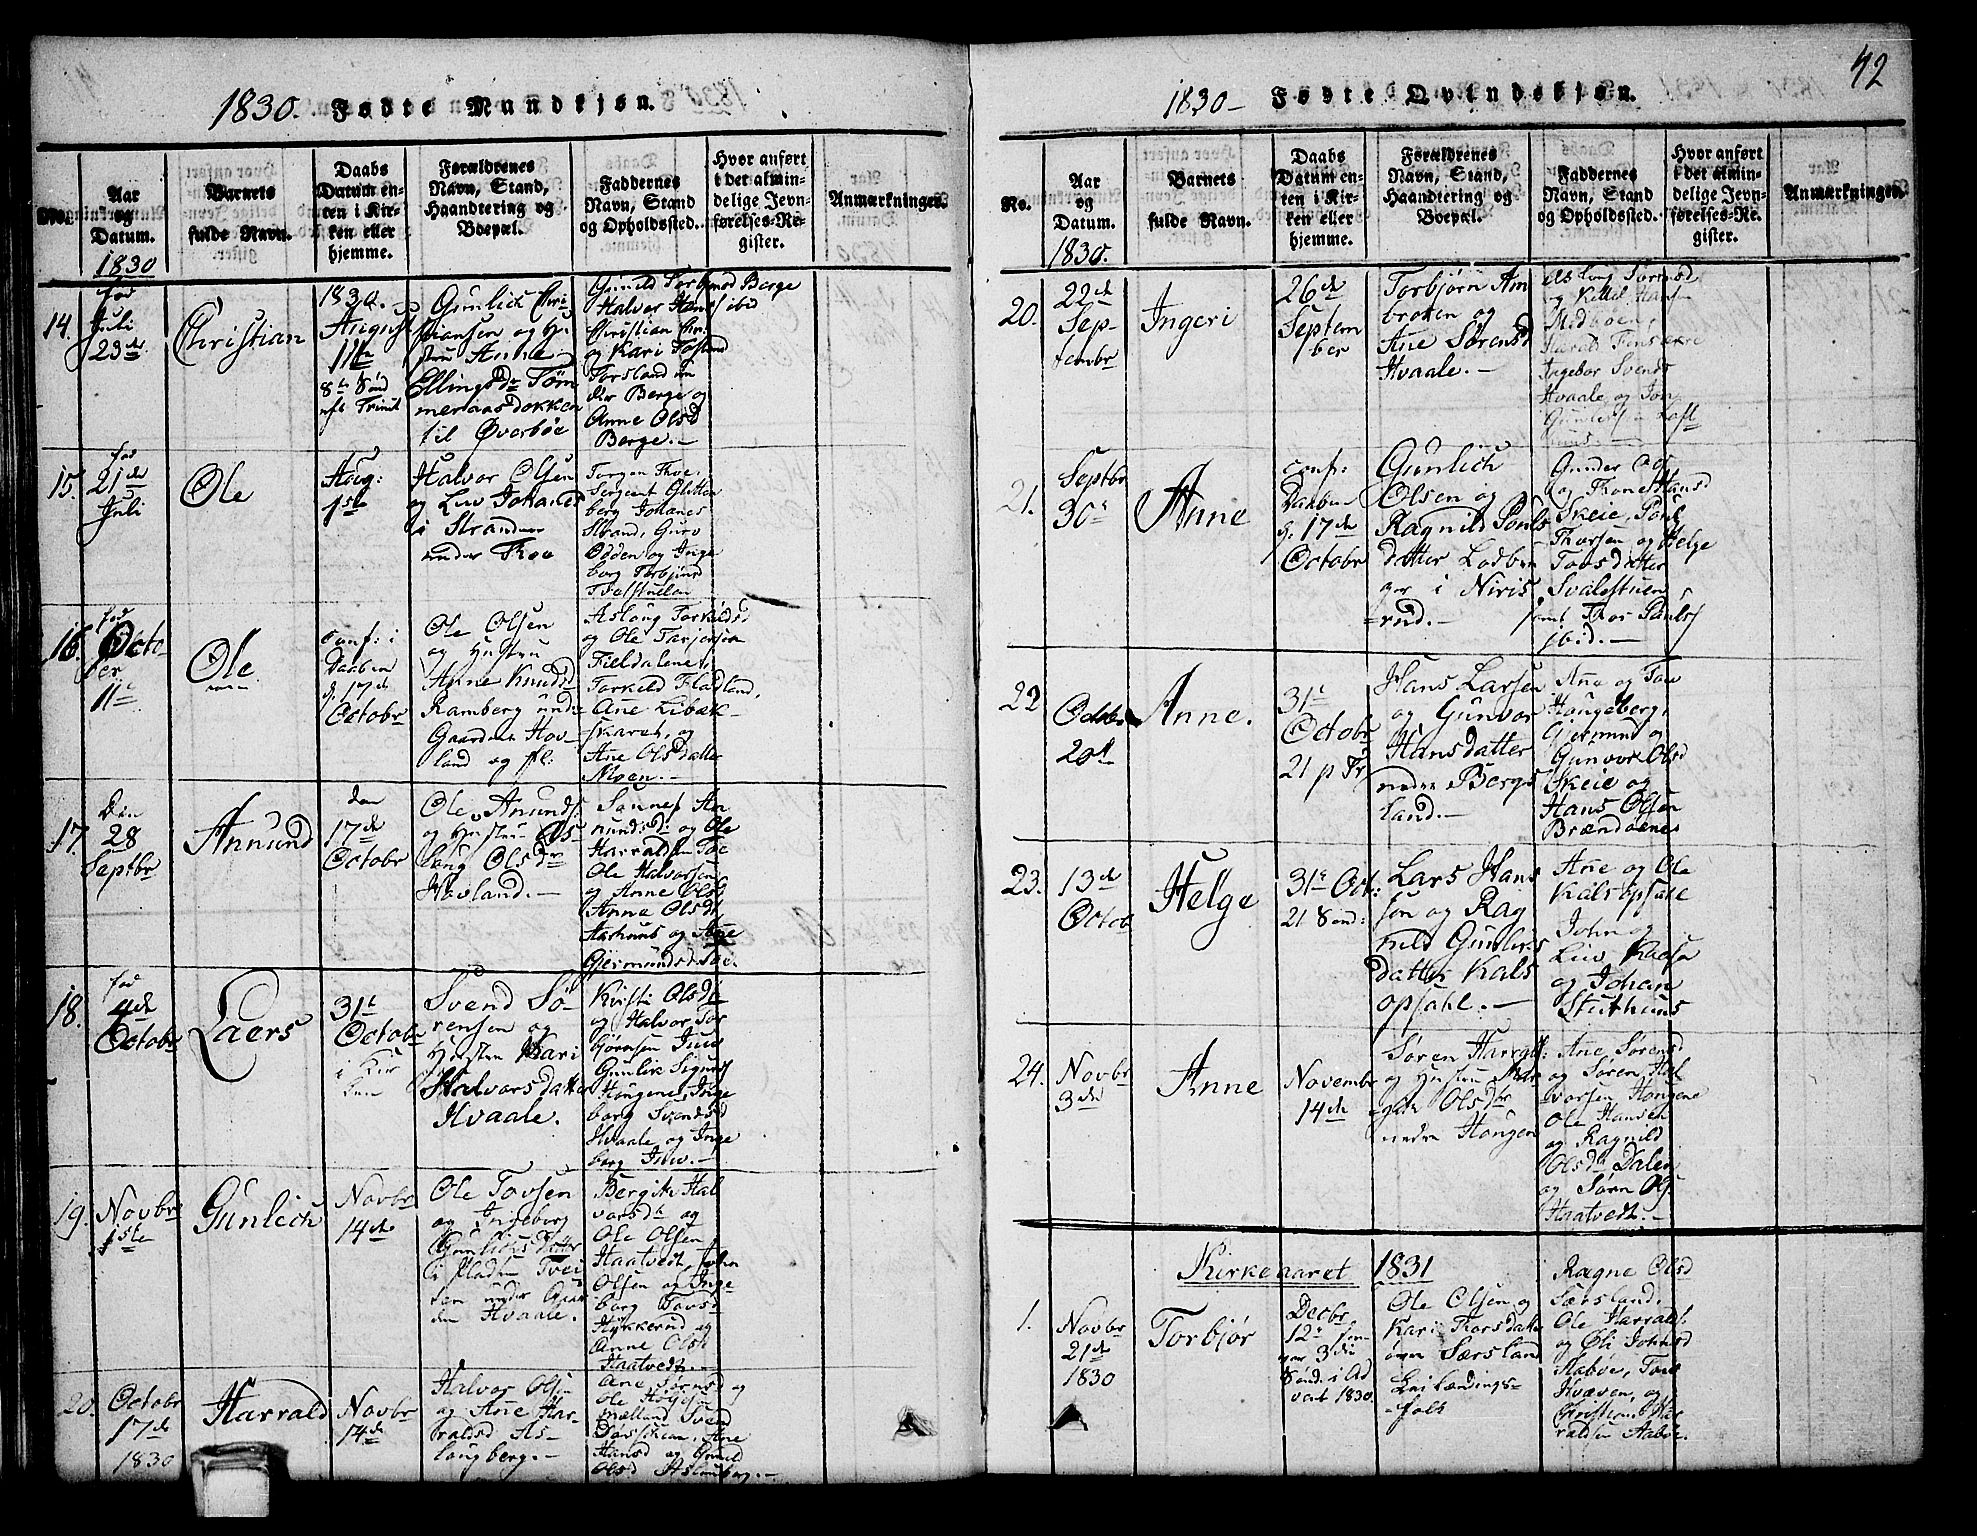 1830. Fødte Mundkjøn.
No.
Aar
og
Datum.
Barnets
fulde Navn.
Daabs
Datum en-
ten i Kir-
ken eller
hjemme.
Forældrenes
Navn, Stand,
Haandtering og
Boepæl.
Faddernes
Navn, Stand
og Opholdssted.
Hvor anført
i det almin-
delige Jevn-
førelses-Re-
gister.
Anmærkninger.
1830
14.
fød
Juli
23de
Christian
1830.
August
11te
8de Sønd
eft. Trinit
Gunlich Chri
stiansen og Hu
stru Anne
Ellingsdr Tøm
meraasdokken
til Øverbøe
Gunild Torbj
Halvor Hans ibid
Christian Chr:
og Kari
Torsland un
der Berge og
Anne Olsd
Berge.-
15.
fød
21de
Juli
Ole
Aug:
1ste
Halvor Olsen
og Liv Johansd
i Stranden
under Roe
Torgen
Sergeant Glitten
berg Johanes
Strand, Guro
Odden og Inge
borg Torbjörsd
16.
fød
Octo-
ber
11te
Ole
conf: i
Daaben
d. 17de
Octobr
Ole Olsen
og Hustru
Anne Knudsd
Ramberg und:
Gaarden Hov-
land og fl:
Asloug Torkildsd
og Ole Tarjersen
Fieldalene,
Torkild Fladland,
Ane Libæk-
skaret, og
Ane Olsdatter
Moen.-
17.
Den
28
Septbr
Annund
den
17de
Octobr
Ole Anunds
og Hustru As
laug Olsdr
Hovland.-
Sannes An
nundsd: og Ole
Harralsen Toe
Ole Halvorsen
og Anne Ols
Anne Olsdt
Aarhuus og Ane
Gjermundsd
18.
fød
4de
Octobr
Laers
31te
Octobr
i Kir
ken
Svend Sö-
rensen og
Hustru Kari
Halvorsdatter
Hvaale.
Kristi Olsdr
og Halvor Tor
björnsen Juve
Gunlik Sigurs
Hougene, Inge
borg Svendsd
Hvaale og Inge
borg Juve.-
19.
Novbr
1ste
Gunlich
Novbr
14de
Ole Tovsen
og Ingeborg
Gunlichsdatter
i Pladsen Tvei
ten under Gaar
den Hvaale.
Bergit Hal
vorsdt og
Ole Olsen
Haatvedt, John
Olsen og Inge
borg Tovsd
Hykkerud og
Anne Olsd
Haatvedt.-
20.
Octobr
17de
1830
Harrald
Novbr
14de
Halvor Ols:
og Ane Har-
raldsd As-
lougberg.-
Ane Sørensd og
Ole
mælland Svend
Ane
Hansd og Gunild
Olsd Aslougberg.-
42
1830- Fødte Qvindekjøn.
No.
Aar
og
Datum.
Barnets
fulde Navn.
Daabs
Datum en-
ten i Kir-
ken eller
hjemme.
Forældrenes
Navn, Stand,
Haandtering og
Boepæl.
Faddernes
Navn, Stand
og Opholdssted.
Hvor anført
i det almin-
delige Jevn-
førelses-Re-
gister.
Anmærkninger.
1830.
20.
22de
Sep-
tembr
Ingeri
26de
Septem
ber
Torbjörn Am
broten og
Ane Sørensd
Hvaale.-
og Kittel Hans
Midboen,
Harald
Ingebor Svends
Hvaale og Jon
21.
Septbr
30te
Anne
conf:
Daaben
d. 17de
Octobr
Gunlich
Olsen og
Ragnild Pouls
datter Lodbor
ger i Niris
=rud.-
Gunder
og Thone Hansd
Skeie, Poul
Thorsen og Helge
Tovsdatter
Svalestuen
samt Thor Pauls
ibid.-
22
Octobr
20de
Anne.
31te
Octobr
21 p Tr
Hans Larsen
og Gunvor
Hansdatter
nedre Bergs
land.-
Ane og Tow
Hougeberg,
Gjermund og
Gunvor Olsd
Skeie og
Hans Olsen
Brændoenes
23.
13de
Octob
Helge
31te Oct:
21 Sønd:
Lars Hans
søn og Rag
nild Gunlics
datter Kals
opsahl.-
Ane og Ole
Kalsopsahl
John og
Liv Kaasa
og Johan
Stuthuus
24.
Novbr
3de
Anne
Novembr
14de
Søren Harral:
og Hustru Mar
gith Olsdtr
nedre Hougen
Ane Sørensd
og Søren Hal
vorsen Hougene
Ole Hansen
og Ragnild
Olsdt Dalen
og Sørn Ols:
Haatvedt.-
Kirkeaaret 1831
1.
Novbr
21de
1830
Torbjør
Decbr
12te
3die
Sønd: i Ad
vent 1830.
Ole Olsen og
Kari Thorsdatter
øvre Særsland
Leilændings-
-folk
Ragne Olsd
Særsland,
Ole Harrald:
og Øli Johnsd
Aabøe, Tone
Kvæven, og
Christians Har
raldsen Aabøe.